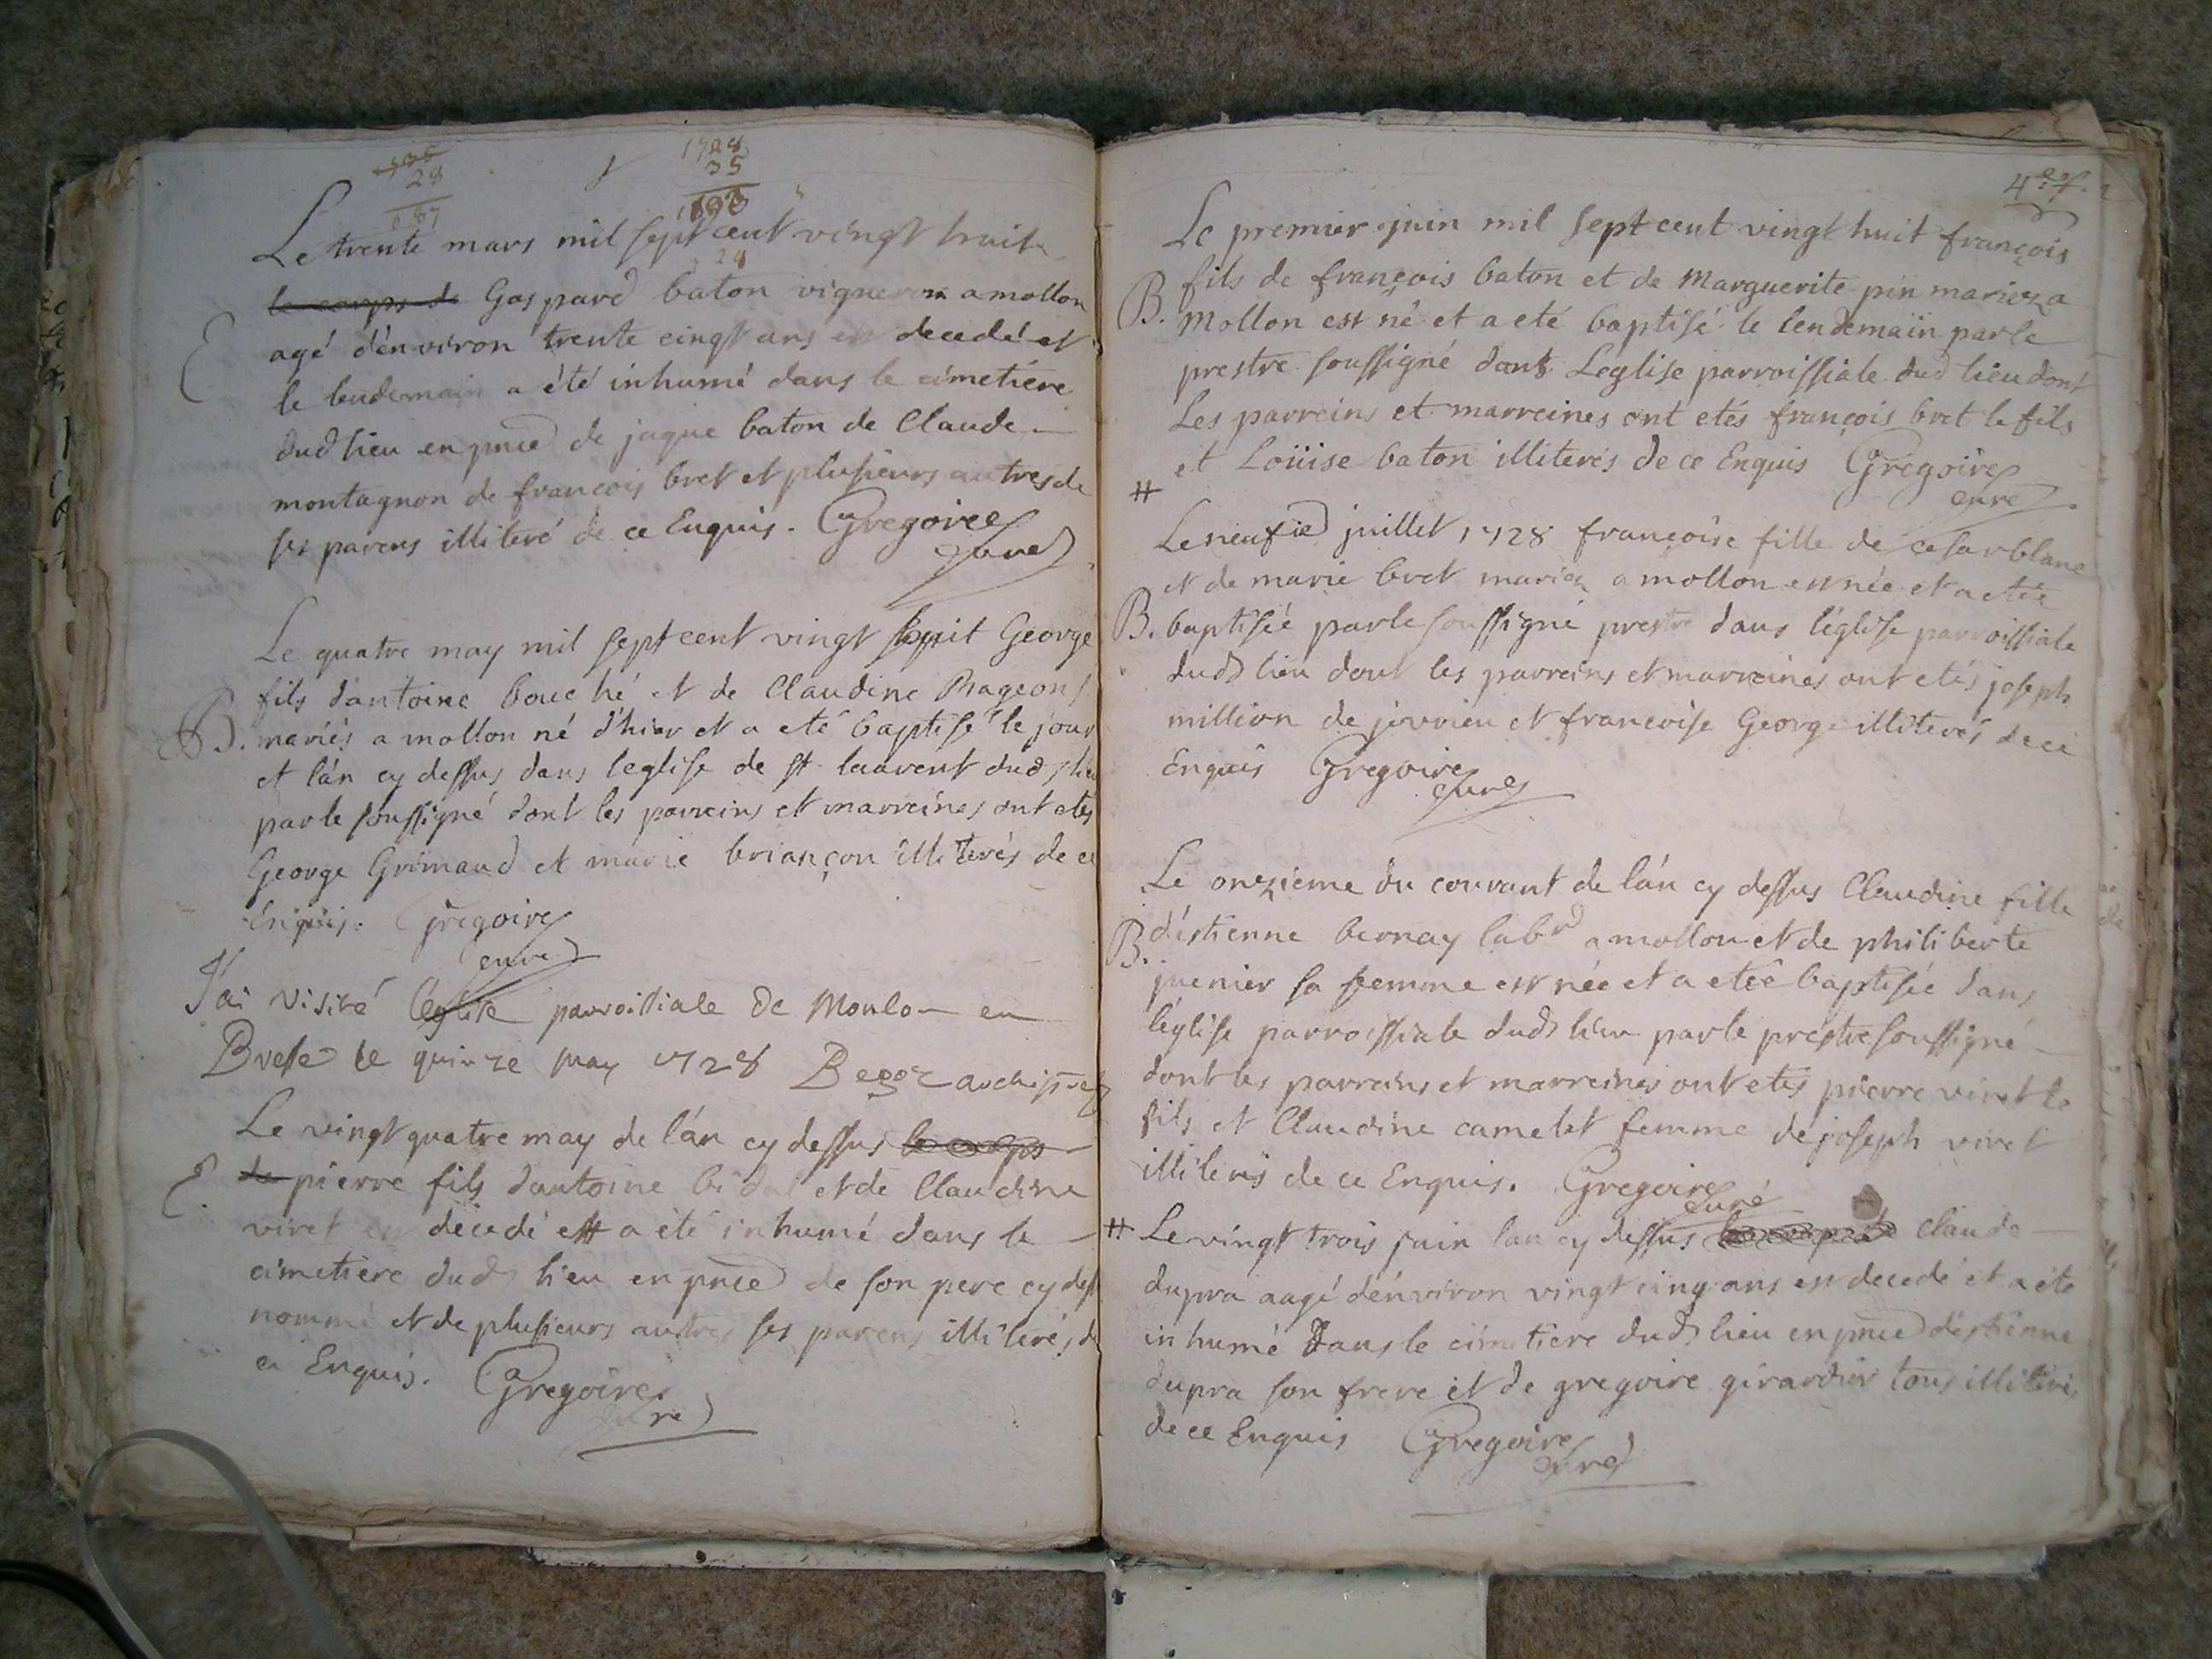 1735
28
687
1728
35
1693
28
Le trente mars mil sept cent vingt huit
le corps de Gaspard baton vigneron a mollon
E agé d'énviron trente cinqt ans est decedé et
le lendemain a été inhumé dans le cimetiére
dud lieu en pnce de jaque baton de Claude
montagnon de francois bret et plusieurs autres de
ses parens illiteré de ce Enquis. Gregoire
Curé
Le quatre may mil sept cent vingt huit George
fils d'antoine bouché et de Claudine Rageon
B. mariés a mollon né d'hier et a eté baptisé le jour
et l'án cy dessus dans leglise de st laurent dud lieu
par le soussigné dont les parreins et marreines ont etés
George Grimaud et marie briançon illiterés de ce
Enquis. Gregoire
curé
J'ai visité léglise parroissiale de Moulon en
Bresse le quinze may 1728 archiprê
Le vingt quatre may de l'án cy dessus le corps
E. de pierre fils d'antoine bidal et de Claudine
viret est décedé et a été inhumé dans le
cimetiére dud lieu en pnce de son pere cy dess
nommé et de plusieurs autres ses parens illiterés de
ce Enquis. Gregoire
curé
Le premier juin mil sept cent vingt huit françois
fils de françois baton et de Marguerite pin mariez a
B. Mollon est né et a eté baptisé le lendemain par le
prestre soussigné dans Leglise parroissiale dud lieu dont
Les parreins et marreines ont etés françois bret le fils
et Loüise baton illiterés de ce Enquis Gregoire
curé
#
Le neufie juillet 1728 françoise fille de cesar blanc
et de marie bret mariez a mollon est née et a etée
B. baptisée par le soussigné prestre dans l'église parroissiale
dud lieu dont les parreins et marreines ont etés joseph
million de jevrieu et francoise George illiterés de ce
Enquis Gregoire
curé
Le onzieme du courant de l'án cy dessus Claudine fille
B. d'éstienne bernay labr a mollon et de philiberte
juenier sa femme est née et a eteé baptisée dans
l'église parroissiale dud lieu par le prestre soussigné
dont les parreins et marreines ont etés pierre viret le
fils et Claudine camelet femme de joseph viret
illiterés de ce Enquis. Gregoire
curé
# Le vingt trois juin lan cy dessus le corps de Claude
dupra aagé d'énviron vingt cinq ans est decedé et a eté
inhumé dans le cimetiere dud lieu en pnce d'éstienne
dupra son frere et de gregoire girardier tous illiterés
de ce Enquis Gregoire
curé